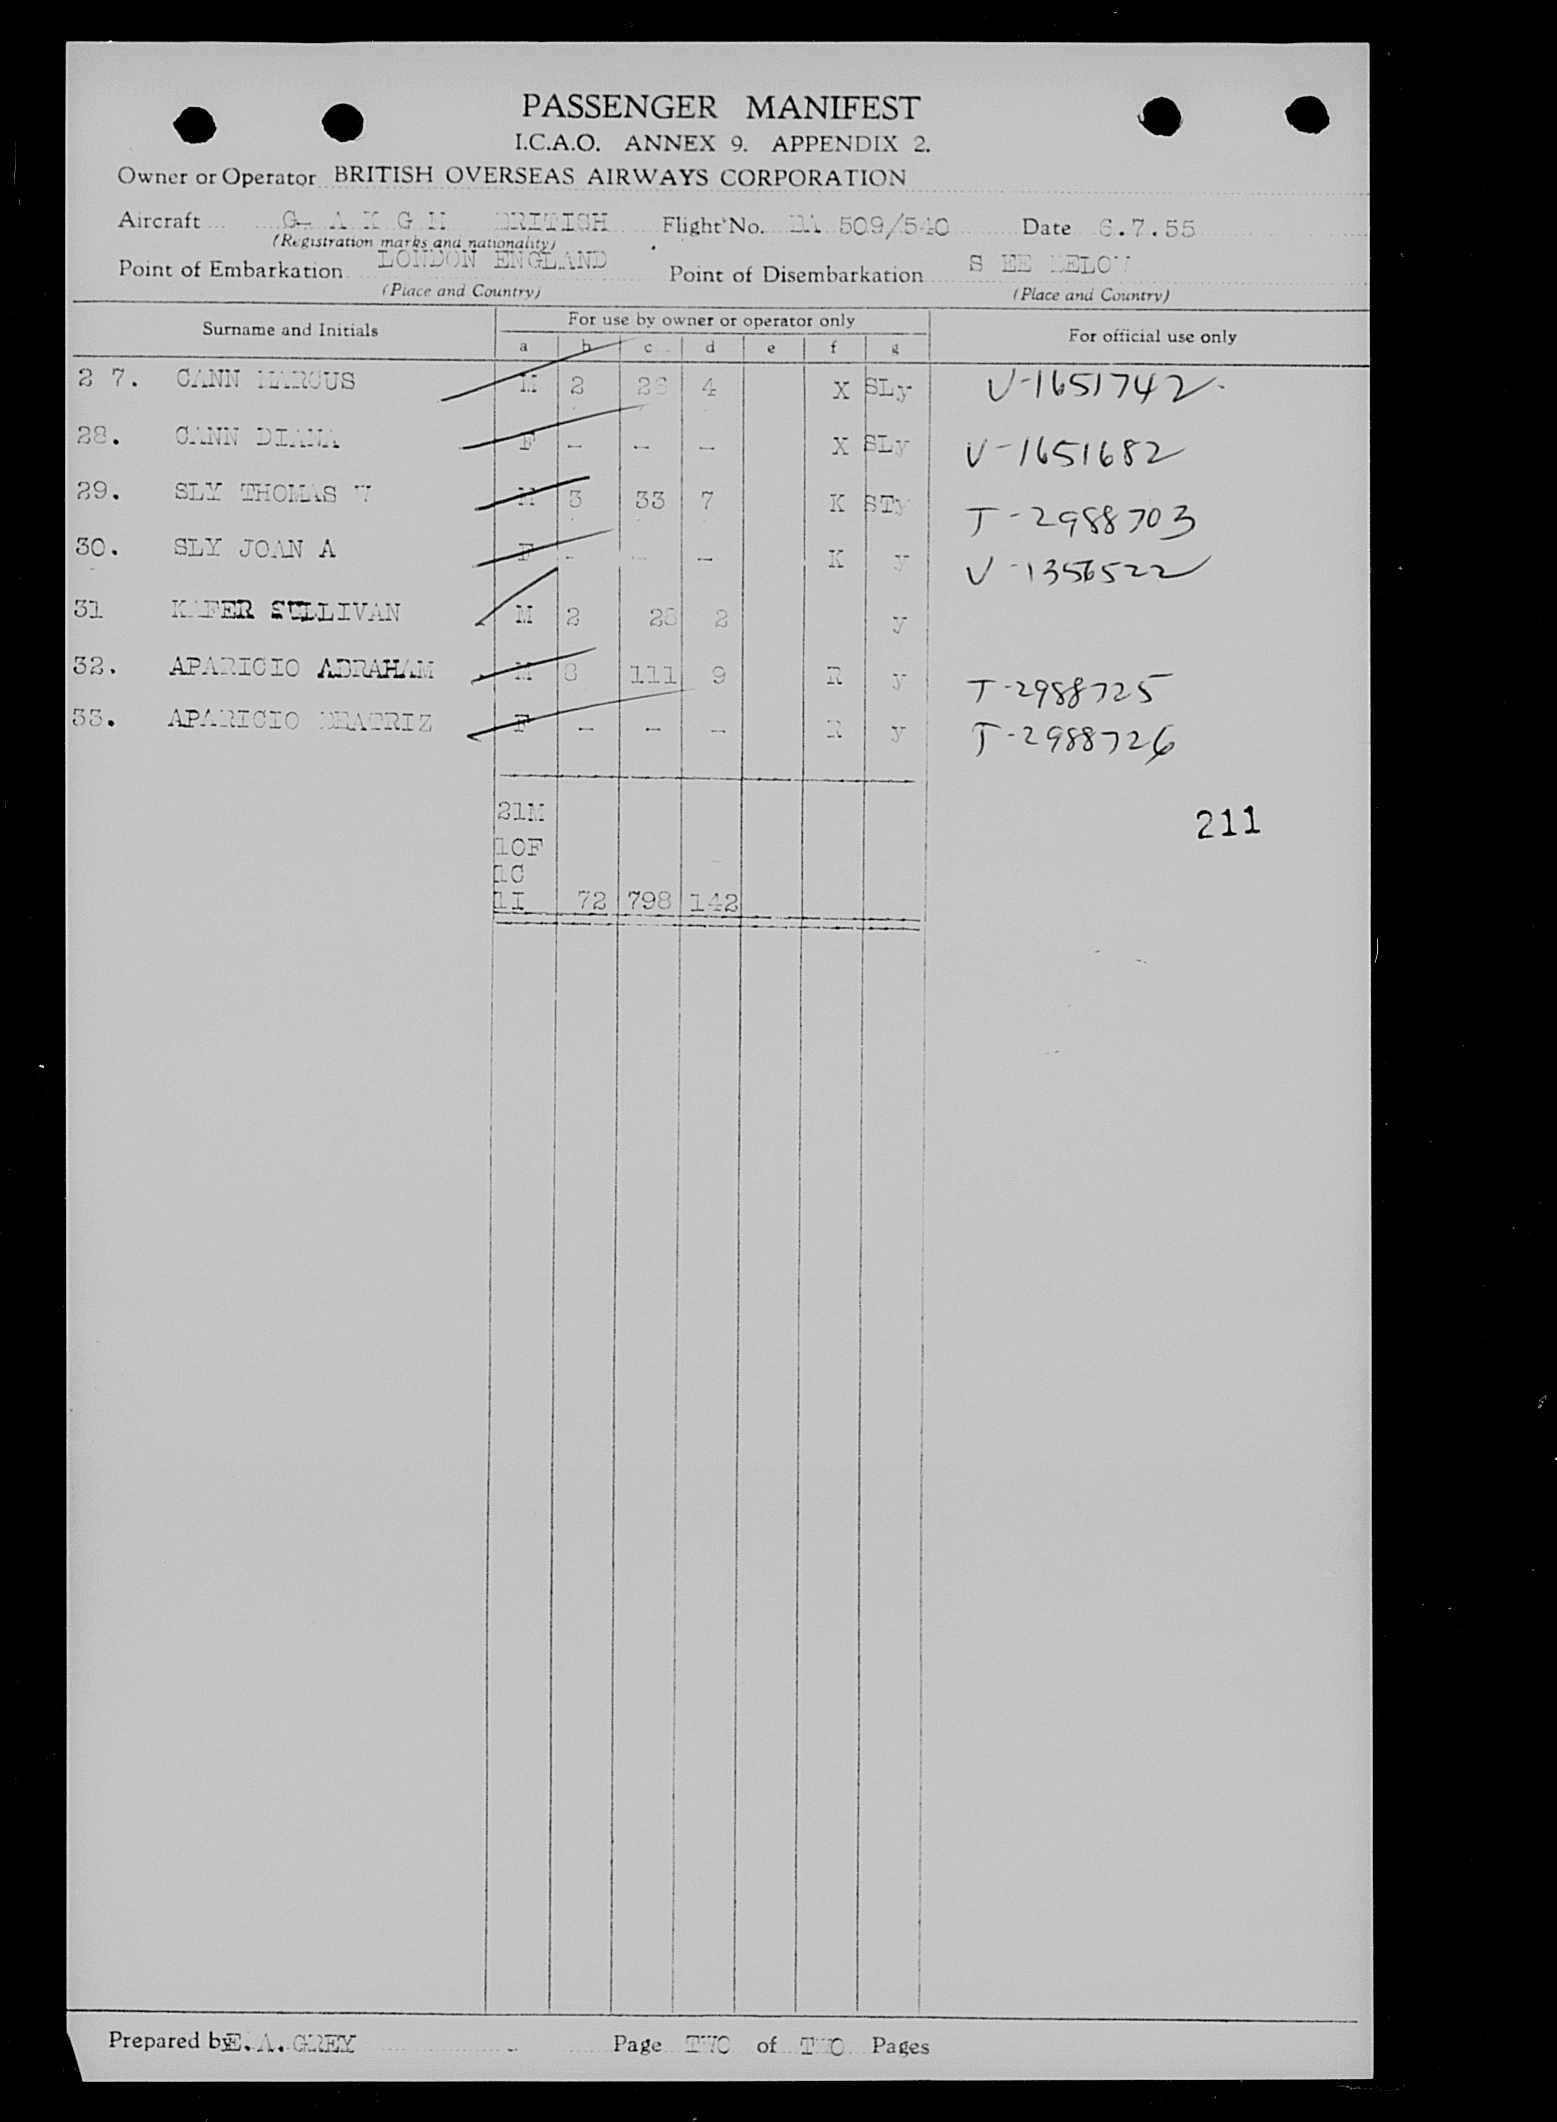 PASSENGER MANIFEST
I.C.A.O. ANNEX 9. APPENDIX 2.
Owner or Operator BRITISH OVERSEAS AIRWAYS CORPORATION
Aircraft G- A K G H BRITISH Flight No. BA 509/540 Date 6.7.55
(Registration marks and nationality)
Point of Embarkation LONDON ENGLAND Point of Disembarkation S EE BELOW
(Place and Country) (Place and Country)
Surname and Initials For use by owner or operator only For official use only
a b c d e f g
2 7. CANN MARCUS M 2 28 4 X SLy V-1651742
28. CANN DIANA F - - - X SLy V-1651682
29. SLY THOMAS W M 3 33 7 K STy T-2988703
30. SLY JOAN A F - - - K y V-1356522
31 KAFER SULLIVAN M 2 28 2 y
32. APARICIO ABRAHAM M 8 111 9 R y T-2988725
33. APARICIO BEATRIZ F - - - R y T-2988726
21M
10F
1C
1I 72 798 142
211
Prepared by E.A.GREY Page TWO of TWO Pages